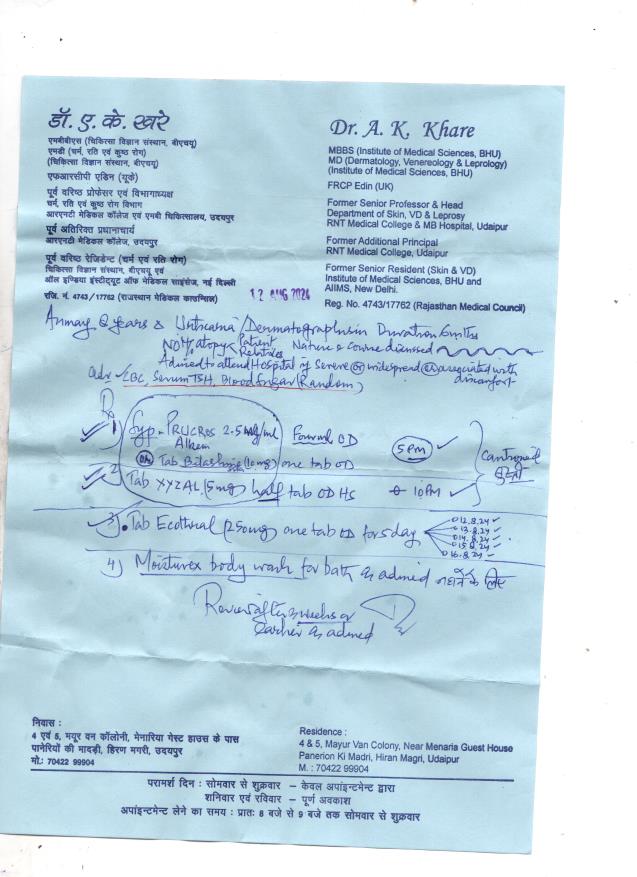 डॉ. ए. के. खरे
एमबीबीएस (चिकित्सा विज्ञान संस्थान, बीएचयू)
एमडी (चर्म, रति एवं कुष्ठ रोग)
(चिकित्सा विज्ञान संस्थान, बीएचयू)
एफआरसीपी एडिन (यूके)
पूर्व वरिष्ठ प्रोफेसर एवं विभागाध्यक्ष
चर्म, रति एवं कुष्ठ रोग विभाग
आरएनटी मेडिकल कॉलेज एवं एमबी चिकित्सालय, उदयपुर
पूर्व अतिरिक्त प्रधानाचार्य
आरएनटी मेडिकल कॉलेज, उदयपुर
पूर्व वरिष्ठ रेजिडेन्ट (चर्म एवं रति रोग)
चिकित्सा विज्ञान संस्थान, बीएचयू एवं
ऑल इण्डिया इंस्टीट्यूट ऑफ मेडिकल साइंसेज, नई दिल्ली
रजि. नं. 4743/17762 (राजस्थान मेडिकल काउन्सिल)
Dr. A. K. Khare
MBBS (Institute of Medical Sciences, BHU)
MD (Dermatology, Venereology & Leprology)
(Institute of Medical Sciences, BHU)
FRCP Edin (UK)
Former Senior Professor & Head
Department of Skin, VD & Leprosy
RNT Medical College & MB Hospital, Udaipur
Former Additional Principal
RNT Medical College, Udaipur
Former Senior Resident (Skin & VD)
Institute of Medical Sciences, BHU and
AIIMS, New Delhi.
Reg. No. 4743/17762 (Rajasthan Medical Council)
12 AUG 2024
years Urticaria/Dermatographism Duration 6mths
atopy Patient Relatives Nature & course discussed
Advised to attend Hospital if severe or widespread or associated with
discomfort
Adv CBC, Serum TSH, Blood Sugar (Random)
Rx
1) Syp. 2.5mg/ml OD 5pm
Alkem
OR Tab (10mg) one tab OD
2 Tab XYZAL (5mg) half tab OD HS 10pm
3). Tab (250mg) one tab OD for 5 day
12.8.24
13.8.24
14.8.24
15.8.24
16.8.24
4) Moisturex body wash for bath as advised नहाने के लिए
Review after weeks or
earlier as advised
निवास :
4 एवं 5, मयूर वन कॉलोनी, मेनारिया गेस्ट हाउस के पास
पानेरियों की मादड़ी, हिरण मगरी, उदयपुर
मो.: 70422 99904
Residence :
4 & 5, Mayur Van Colony, Near Menaria Guest House
Panerion Ki Madri, Hiran Magri, Udaipur
M. : 70422 99904
परामर्श दिन : सोमवार से शुक्रवार – केवल अपाइन्टमेन्ट द्वारा
शनिवार एवं रविवार – पूर्ण अवकाश
अपांइन्टमेन्ट लेने का समय : प्रातः 8 बजे से 9 बजे तक सोमवार से शुक्रवार